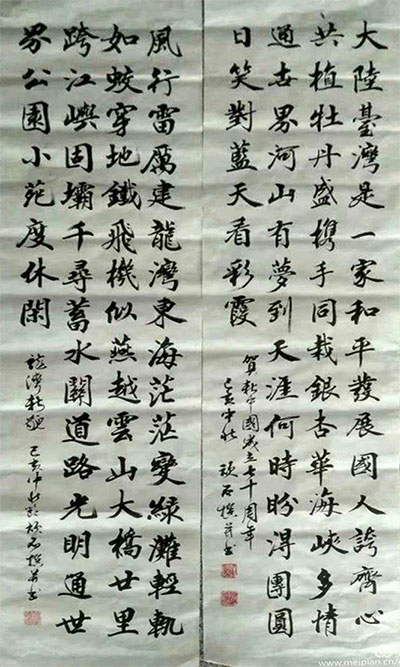 大陸臺灣是一家和平發展國人誇齊心
共植牡丹盛携手同栽銀杏華海峽多情
通世界河山有夢到天涯何時盼得團圓
日笑對藍天看彩霞
賀新中國成立七十周年
己亥中秋 頑石撰并書
風行雷厲建龍灣東海茫茫變綠灘輕軌
如蛟穿地鐵飛機似燕越雲山大橋廿里
跨江嶼固壩千尋蓄水關道路光明通世
界公園小苑度休閑
龍灣新貌 己亥中秋 頑石撰并書
www.meipian.cn/